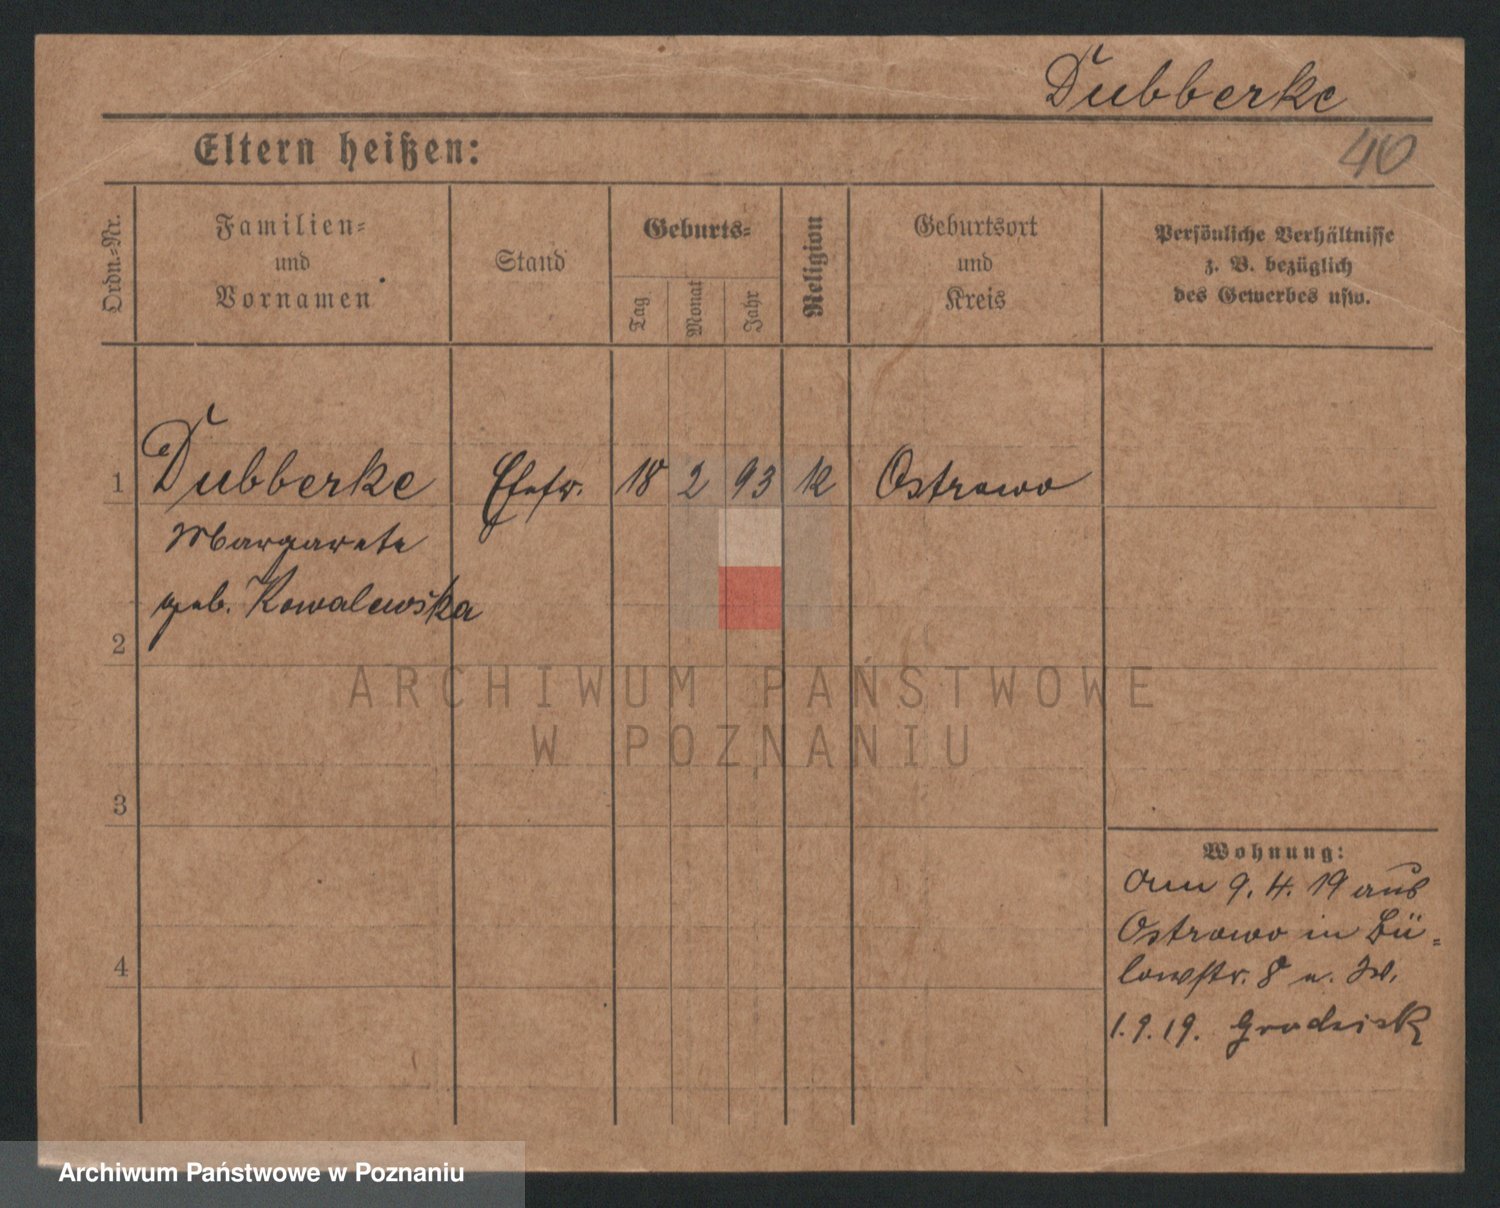 Dubberke
Eltern heißen:
40
Ordn.-Nr.
Familien-
und
Vornamen
Stand
Geburts-
Tag
Monat
Jahr
Religion
Geburtsort
und
Kreis
Persönliche Verhältnisse
z. B. bezüglich
des Gewerbes usw.
1 Dubberke Ehefr. 18 2 93 k Ostrowo
Margarete
geb. Kowalewska
2
ARCHIWUM PAŃSTWOWE
W POZNANIU
3
Wohnung:
Am 9. 4. 19 aus
Ostrowo in Bü-
lowstr. 8 u. W.
4
1. 9. 19. Grodzisk
Archiwum Państwowe w Poznaniu